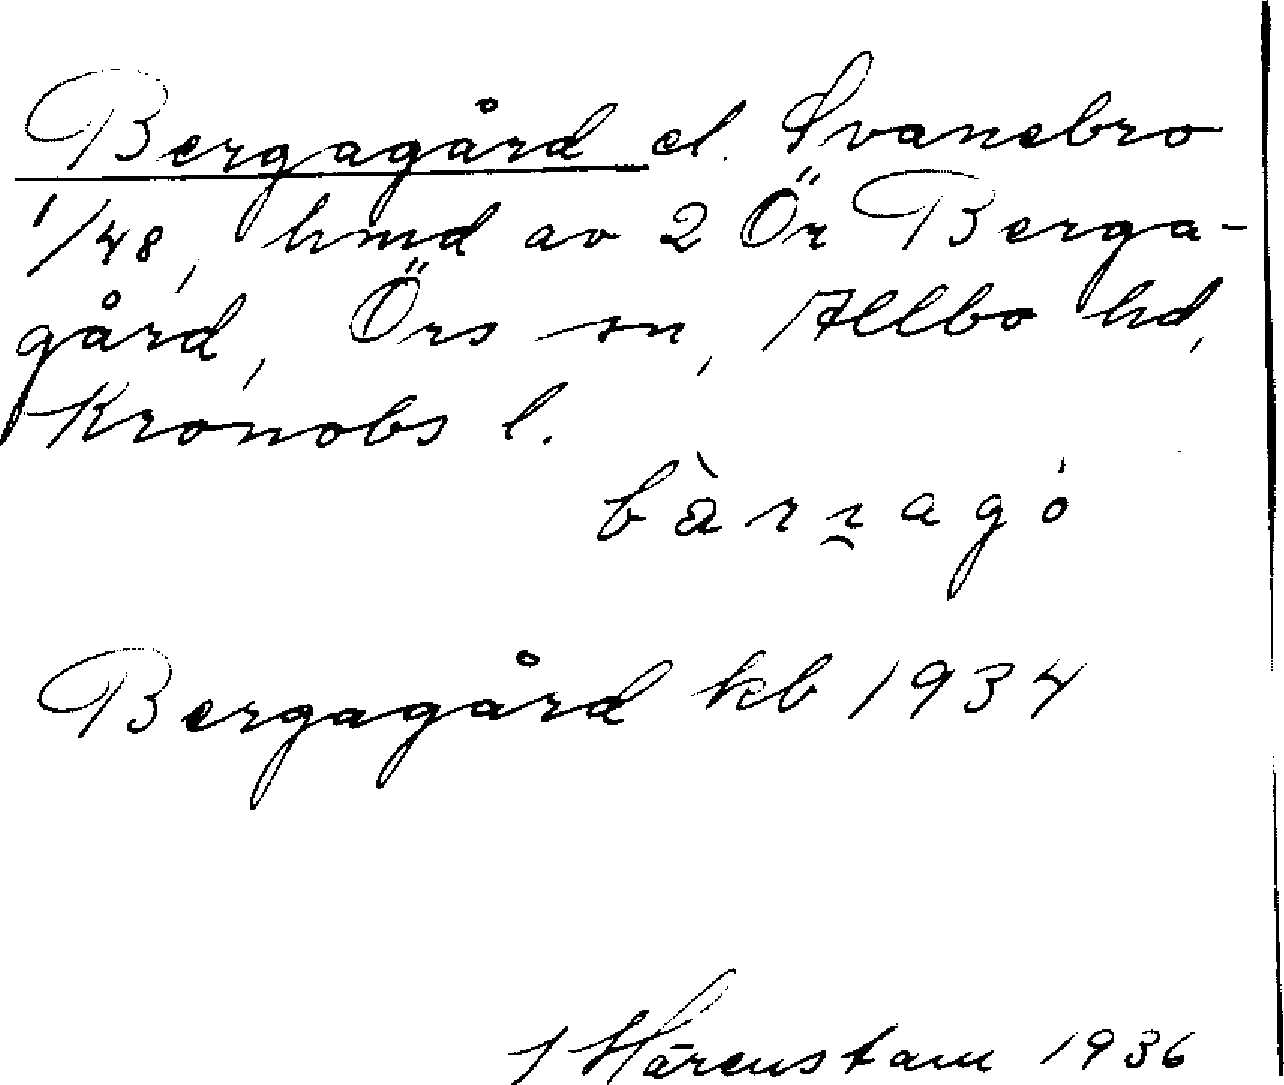 Bergagård el. Svanebro
1/48, hmd av 2 Ör Berga-
gård, Örs sn, Allbo hd,
Kronobs l.
bàrr̯agó
Bergagård kb 1934
J Hårenstam 1936